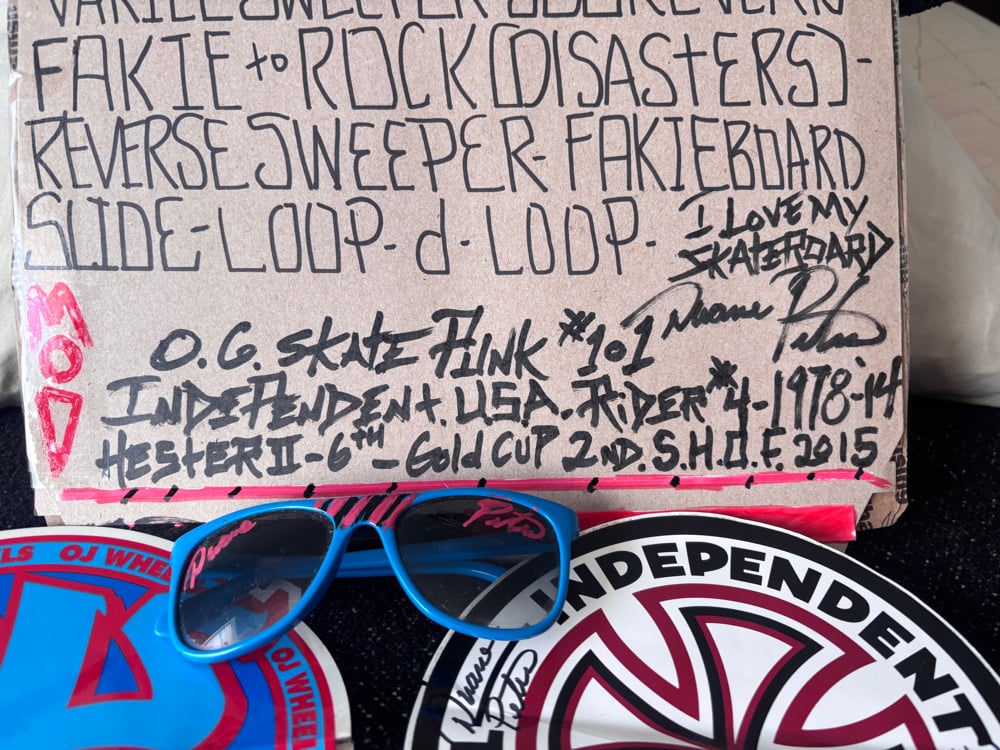 VARIEL SWEEPER
FAKIE to ROCK (DISASTERS) -
REVERSE SWEEPER- FAKIEBOARD
SLIDE- LOOP- d- LOOP-
I LOVE MY
SKATEBOARD
Duane Peters
MOD
O.G. SKATE PUNK #1 of 1
INDEPENDENT. U.S.A. RIDER #4-1978-14
HESTER II - 6TH - Gold CUP 2ND. S.H.O.F. 2015
Duane
Peters
ELS OJ WHEEL
OJ WHEEL
INDEPENDENT
Duane
Peters